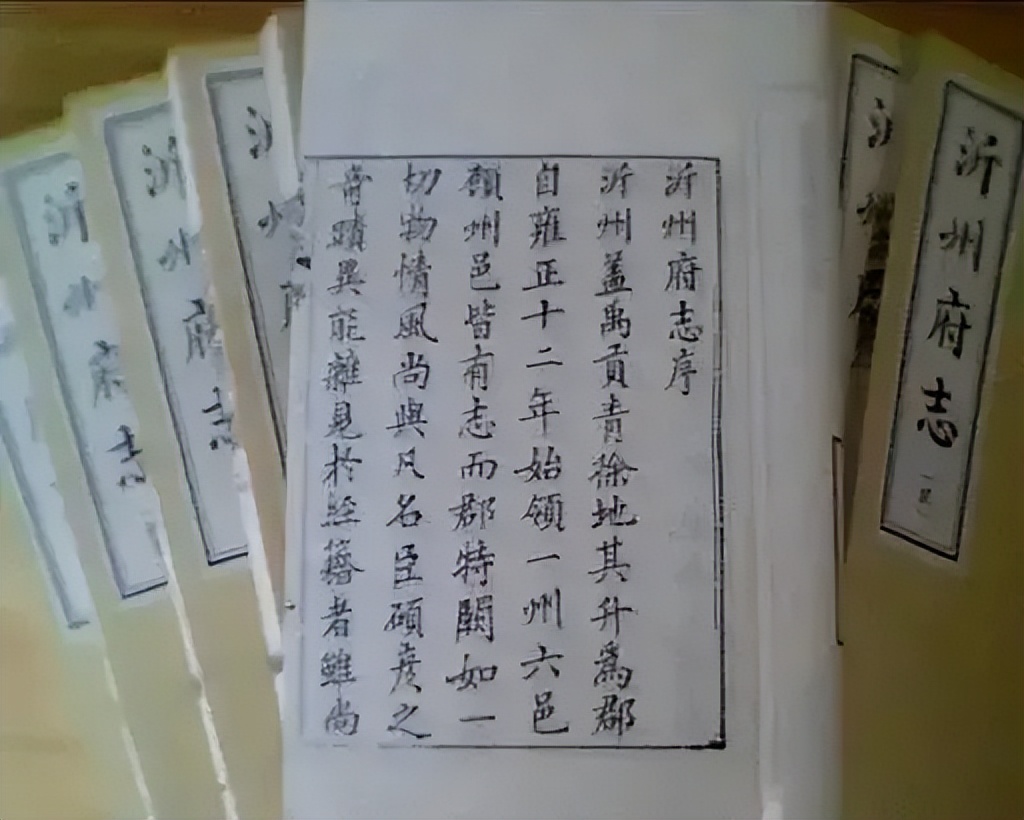 沂州府志序
沂州蓋禹貢青徐地其升爲郡
自雍正十二年始領一州六邑
領州邑皆有志而郡特闕如一
切物情風尚與凡名臣碩彦之
蹟異能雜見於經籍者雖尚
沂州府志
沂州府志
沂州府
沂州
沂州府志